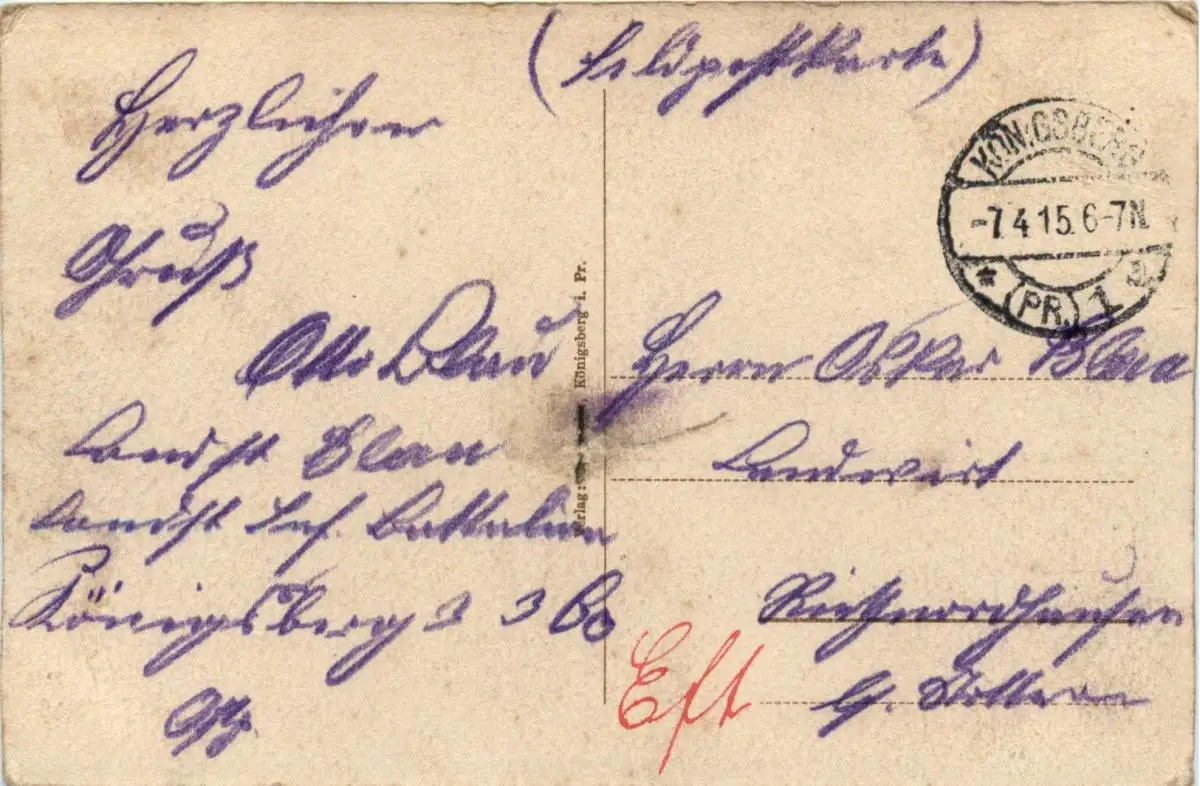 (Feldpostkarte)
Herzlichen
Gruß
Otto Blau
Landst Blau
Landst Inf. Battalion
Königsberg 3 3 Co
KÖNIGSBERG
-7.4.15.6-7N.
* (PR.) 1 a.
Verlag: Königsberg i. Pr.
Herrn Oskar Blau
Landwirt
Riethnordhausen
Eft